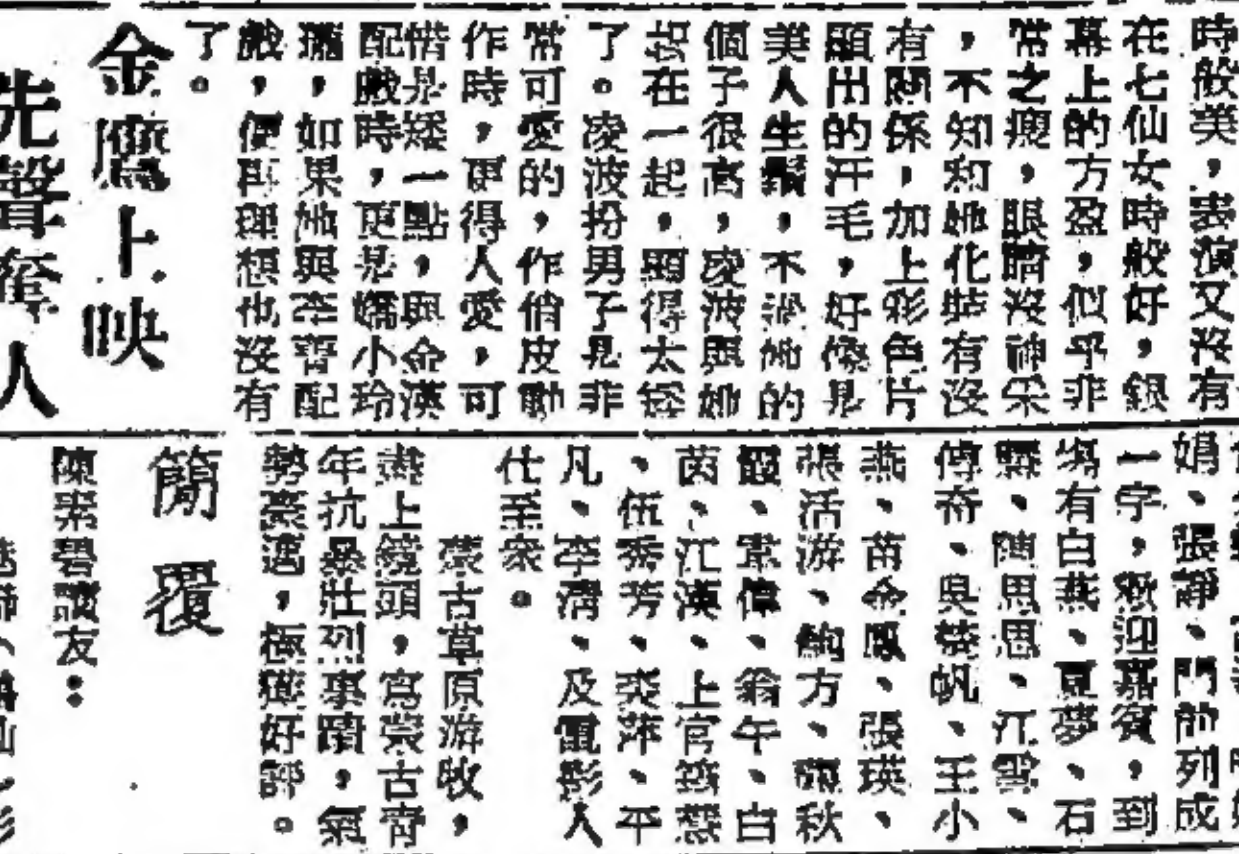 時般美，表演又沒有
在七仙女時般好，銀
幕上的方盈，似乎非
常之瘦，眼睛沒神采
，不知和她化裝有沒
有關係，加上彩色片
顯出的汗毛，好像是
美人生鬚，不過她的
個子很高，凌波與她
站在一起，顯得太矮
了。凌波扮男子是非
常可愛的，作俏皮動
作時，更得人愛，可
惜是矮一點，與金漢
配戲時，更見嬌小玲
瓏，如果她與李菁配
戲，便再理想也沒有
了。
金鷹上映
先聲奪人
娟、張錚、門前列成
一字，歡迎嘉賓，到
塲有白燕、夏夢、石
慧、陳思思、江雪、
傅奇、吳楚帆、王小
燕、苗金鳳、張瑛、
張活游、鮑方、龍秋
、高偉、翁午、白
茵、江漢、上官筠慧
、伍秀芳、奕萍、平
凡、李清、及電影人
仕至衆。
蒙古草原游牧，
盡上鏡頭，寫蒙古青
年抗暴壯烈事蹟，氣
勢豪邁，極獲好評。
簡覆
陳素碧讀友：